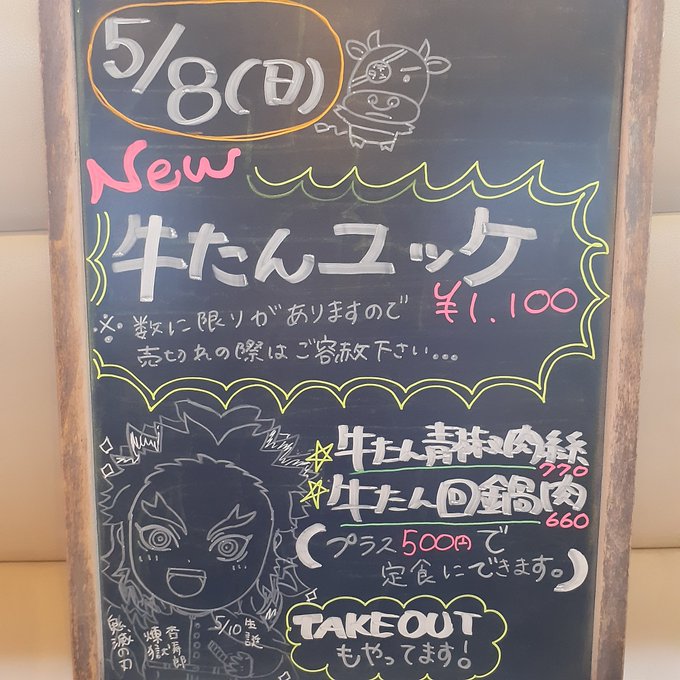 5/8(日)
New
牛たんユッケ
¥1,100
※数に限りがありますので
売切れの際はご容赦下さい...
☆牛たん青椒肉絲
770
☆牛たん回鍋肉
660
(プラス500円で
定食にできます。)
TAKEOUT
もやってます!
5/10生誕
杏寿郎
煉獄
鬼滅の刃